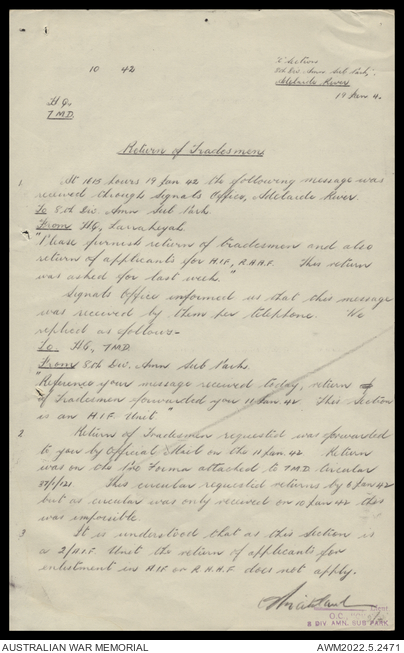 "C" Section
8th Div. Amn Sub Park,
Adelaide River
19 Jan 4.
10 42
HQ
7 M.D.
Return of Tradesmen
1. At 1115 hours 19 Jan 42 the following message was
received through Signals Office, Adelaide River.
To 8th Div. Amn Sub Park
From HQ, Larrakeyah
"Please furnish return of tradesmen and also
return of applicants for A.I.F., R.A.A.F. This return
was asked for last week."
Signals Office informed us that this message
was received by them per telephone. We
replied as follows-
To HQ, 7 M.D.
From 8th Div. Amn Sub Park.
"Reference your message received today, return
of Tradesmen forwarded you 11 Jan 42. This Section
is an A.I.F. Unit"
2 Return of Tradesmen requested was forwarded
to you by Official Mail on the 11 Jan 42. Return
was on the Pro Forma attached to 7 M.D. Circular
This circular requested returns by 8 Jan 42
but as circular was only received on 10 Jan 42 this
was impossible.
3 It is understood that as this Section is
a 2/A.I.F. Unit the return of applicants for
enlistment in A.I.F. or R.A.A.F. does not apply.
LIEUT.
O.C.
8 DIV. AMN. SUB PARK
AUSTRALIAN WAR MEMORIAL
AWM2022.5.2471